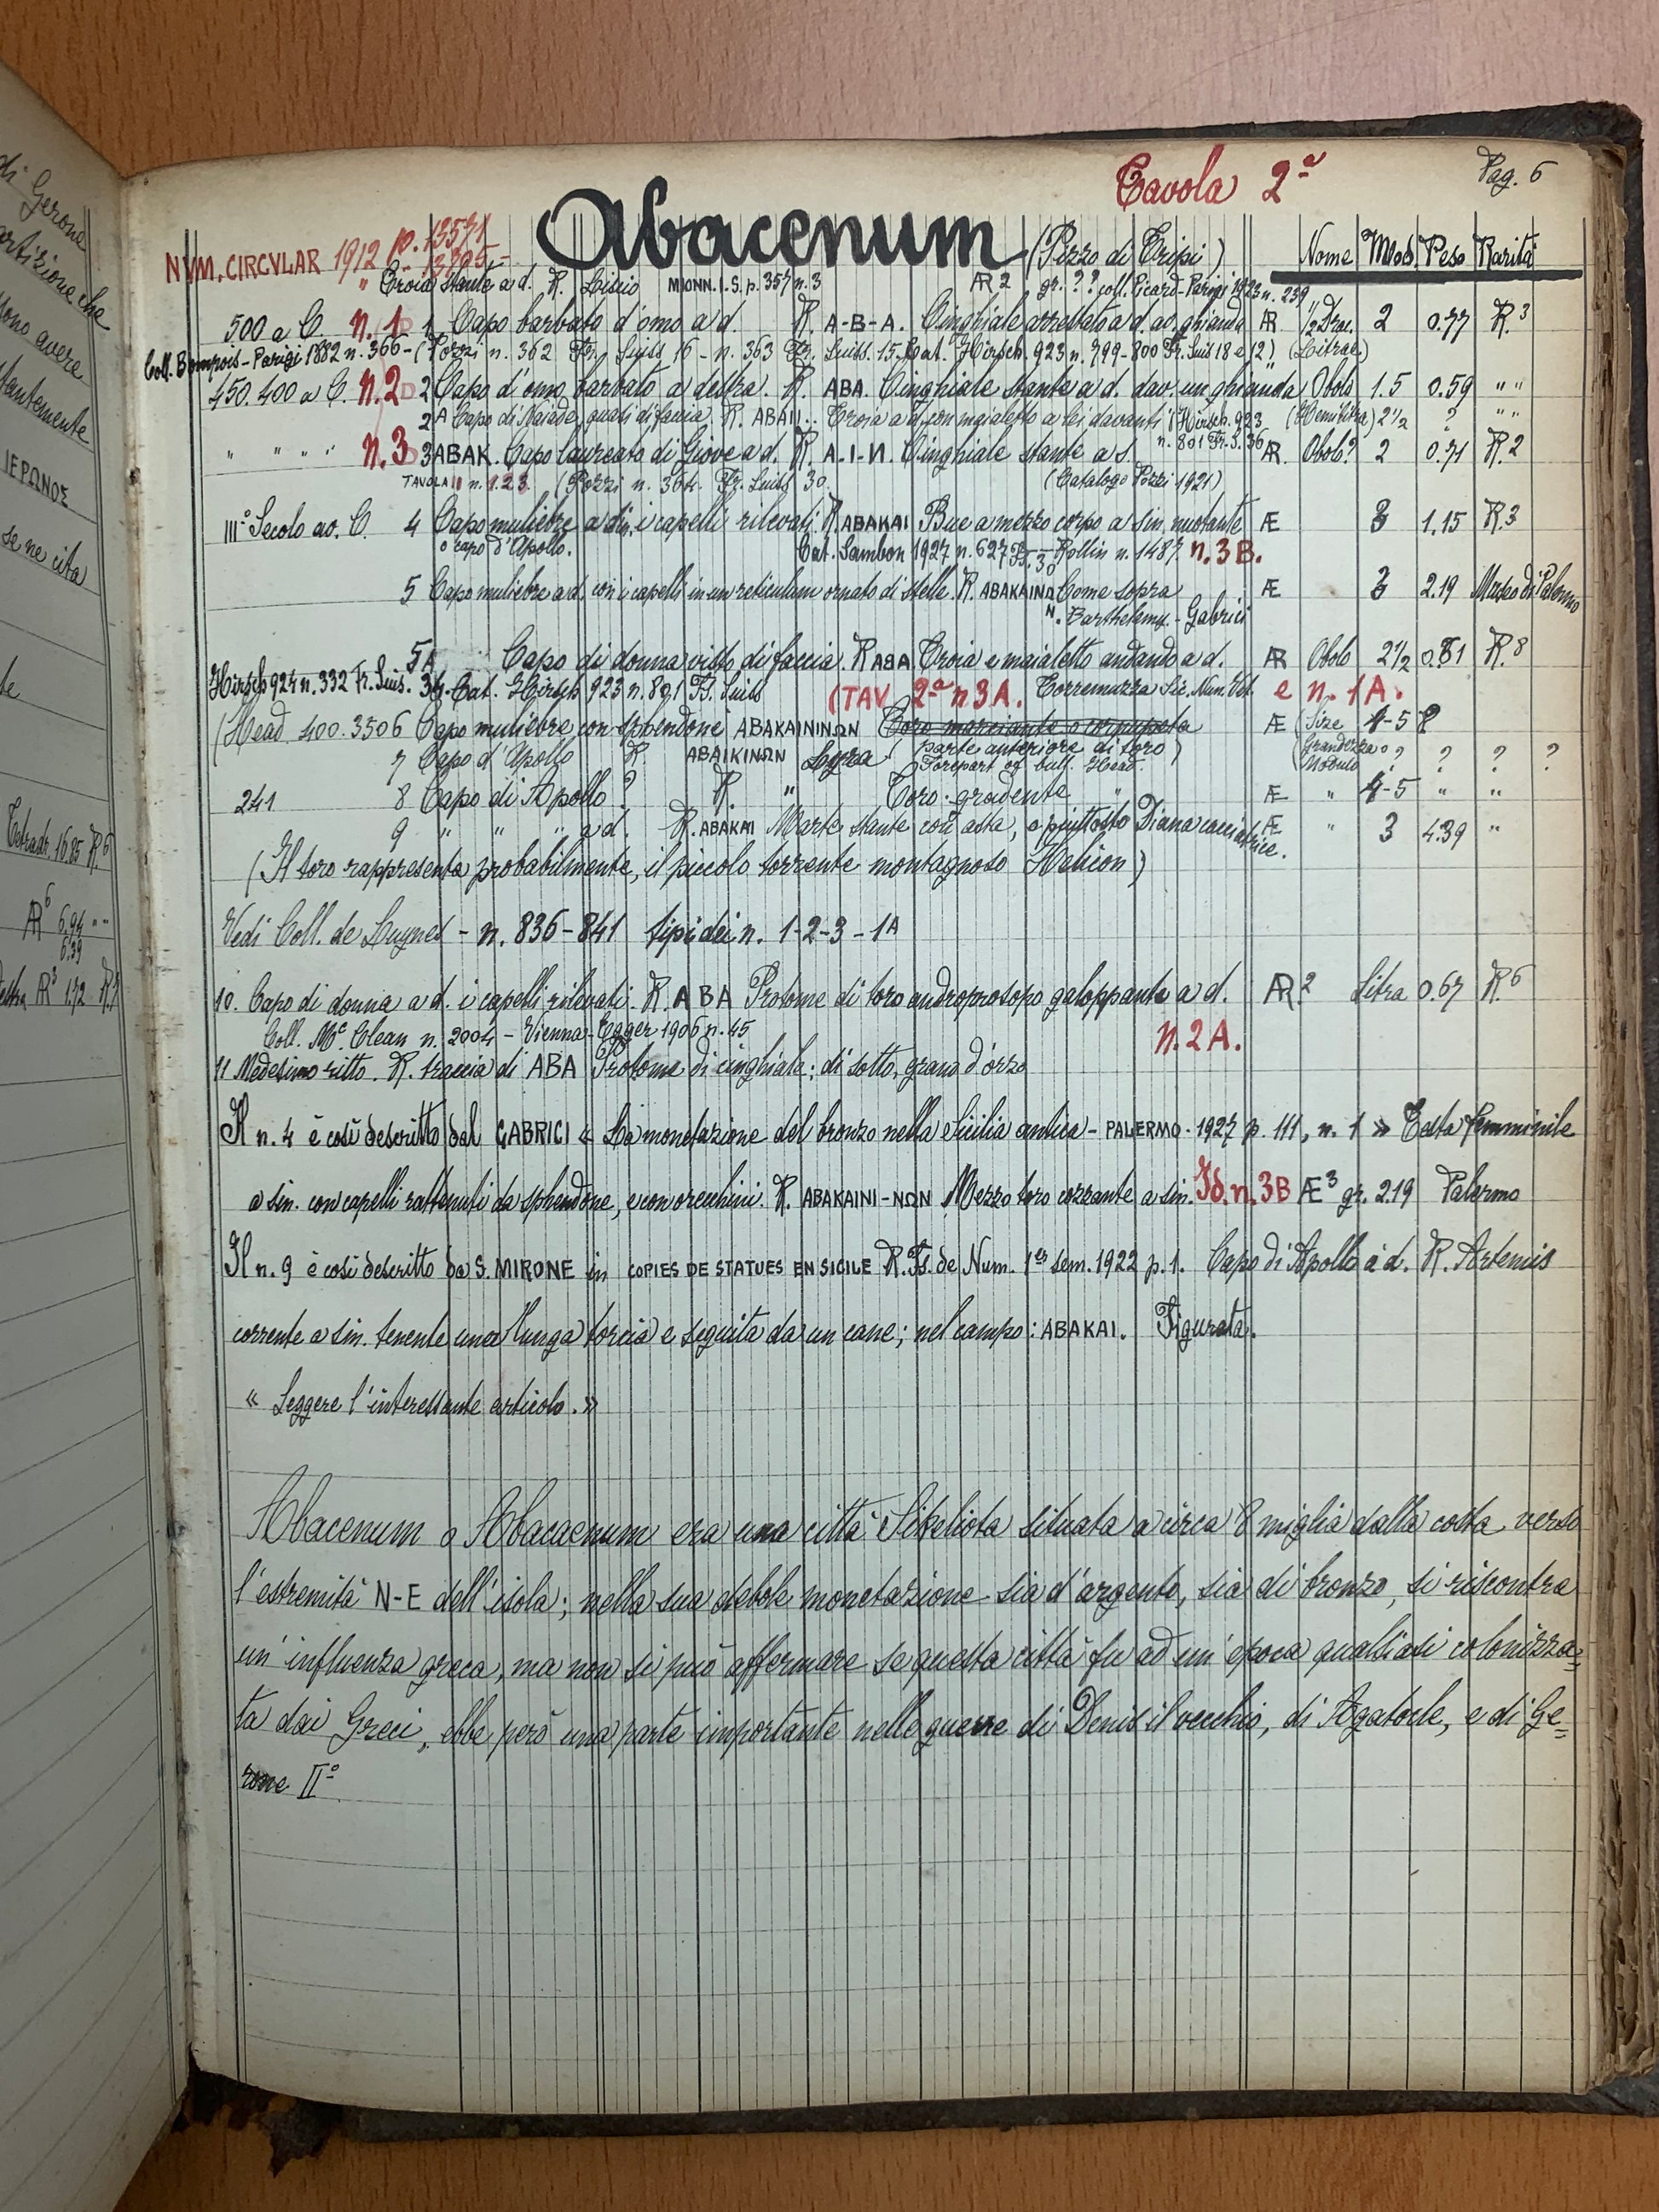 di Gerone
che
sono avere
ΙΕΡΩΝΟΣ
se ne cita
Tetradr. 16.85 R6
AR 6 6.94 " "
6.39
AR 3 1.72
Tavola 2ª
Pag. 6
NVM. CIRCVLAR 1912 p. 13571
Abacenum (Pizzo di Tripi)
Nome Mod. Peso Rarità
" Troia stante a d. R. Liscio MIONN. I. S. p. 357 n. 3 AR 2 gr. ?? coll. Picard-Parigi 1923 n. 239
500 a C. n. 1 1 Capo barbato d'omo a d. R. A-B-A. Cinghiale arrestato a d. av. ghianda AR. 1/2 Drac. 2 0.77 R.3
Coll. Bompois - Parigi 1882 n. 366 - (Pozzi n. 362 Fr. Suiss. 16 - n. 363 Fr. Suiss. 15. Cat. Hirsch. 923 n. 799-800 Fr. Suis 18 e 12) (Litrae)
450.400 a C. n. 2 2 Capo d'omo barbato a destra. R. ABA. Cinghiale stante a d. dav. un ghianda Obolo 1.5 0.59 " "
2A Capo di Naiade, quasi di faccia. R. ABAII.. Troia a d. con maialetto a lei davanti Hirsch. 923 (Hemilitra) 2 1/2 ? " "
n. 801 Fr. S. 36
" " " " n. 3 3 ABAK. Capo laureato di Giove a d. R. A-I-N. Cinghiale stante a s. AR. Obolo? 2 0.71 R.2
TAVOLA II n. 1. 2 3. (Pozzi n. 364. Fr. Suiss 30. (Catalogo Pozzi 1921)
III° Secolo av. C. 4 Capo muliebre a sin. i capelli rilevati. R. ABAKAI Bue a mezzo corpo a sin. nuotante Æ 3 1.15 R.3
o capo d'Apollo. Cat. Sambon 1927 n. 627 Fs. 30 Rollin n. 1487. n. 3 B.
5 Capo muliebre a d. con i capelli in un reticulum ornato di stelle. R. ABAKAINΩN Come sopra Æ 3 2.19 Museo di Palermo
Barthelemy. - Gabrici
5A Capo di donna visto di faccia. R ABA Troia e maialetto andando a d. AR Obolo 2 1/2 0.81 R.8
Hirsch 924 n. 332 Fr. Suis. 34. Cat. Hirsch 923 n. 801 Fs. Suiss (TAV 2ª n 3 A. Torremuzza Sic. Num. Vet. e n. 1 A.
(Head. 400.350 6 Capo muliebre con sphendone ABAKAININΩN Toro marciante o cornupeta Æ (Size 4-5 ?
7 Capo d'Apollo R. ABAIKINΩN Lyra (parte anteriore di toro) Grandezza o ? ? ? ?
Forepart of bull. Head. Modulo
241 8 Capo di Apollo ? R " Toro gradente " Æ " 4-5 " "
9 " " " a d. R. ABAKAI Marte stante con asta, o piuttosto Diana cacciatrice. Æ " 3 4.39 "
(Il toro rappresenta probabilmente, il piccolo torrente montagnoso Helicon)
Vedi Coll. de Luynes - n. 836-841 tipi dei n. 1-2-3-1A
10. Capo di donna a d. i capelli rilevati. R. ABA Protome di toro androprosopo galoppante a d. AR 2 Litra 0.67 R.6
Coll. Mc. Clean n. 2004 - Vienna-Egger 1906 n. 45 n. 2 A.
11 Medesimo ritto. R. traccia di ABA Protome di cinghiale; di sotto, grano d'orzo
Il n. 4 è così descritto dal GABRICI « La monetazione del bronzo nella Sicilia antica - PALERMO - 1927 p. 111, n. 1 » Testa femminile
a sin. con capelli rattenuti da sphendone, e con orecchini. R. ABAKAINI-NΩN Mezzo toro cozzante a sin. Id. n. 3B Æ3 gr. 2.19 Palermo
Il n. 9 è così descritto da S. MIRONE in COPIES DE STATUES EN SICILE R. Fs. de Num. 1er sem. 1922 p. 1. Capo di Apollo a d. R. Artemis
corrente a sin. tenente una lunga torcia e seguita da un cane; nel campo: ABAKAI. Figurata.
« Leggere l'interessante articolo. »
Abacenum o Abacaenum era una città Sikeliota situata a circa 8 miglia dalla costa verso
l'estremità N-E dell'isola; nella sua debole monetazione sia d'argento, sia di bronzo, si riscontra
un'influenza greca, ma non si può affermare se questa città fu ad un'epoca qualsiasi colonizza=
ta dai Greci, ebbe però una parte importante nelle guerre di Denis il vecchio, di Agatocle, e di Ge=
rone II°